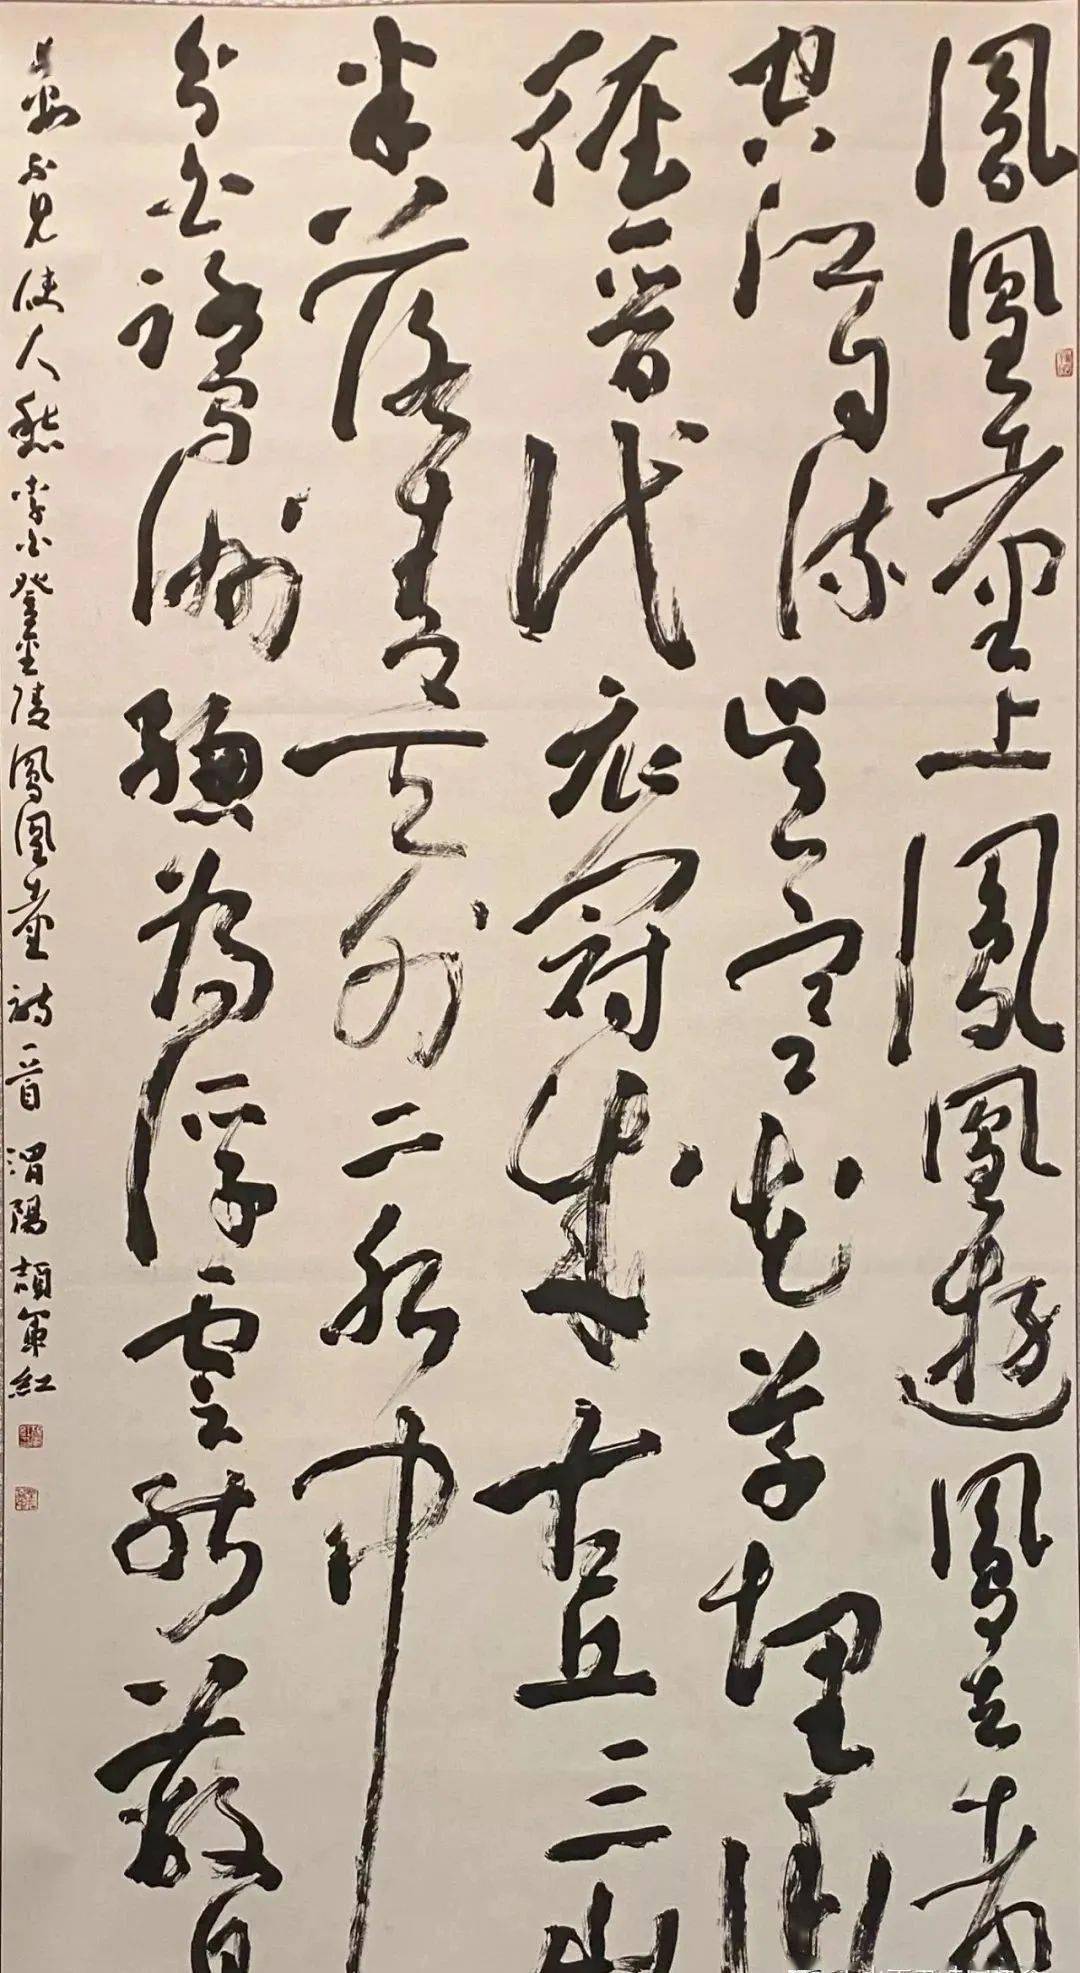 鳳凰臺上鳳凰遊鳳去臺
空江自流吳宮花草埋幽
徑晉代衣冠成古丘三山
半落青天外二水中
分白鷺洲總為浮雲能蔽日
長安不見使人愁 李白登金陵鳳凰臺詩一首 渭陽頡軍紅